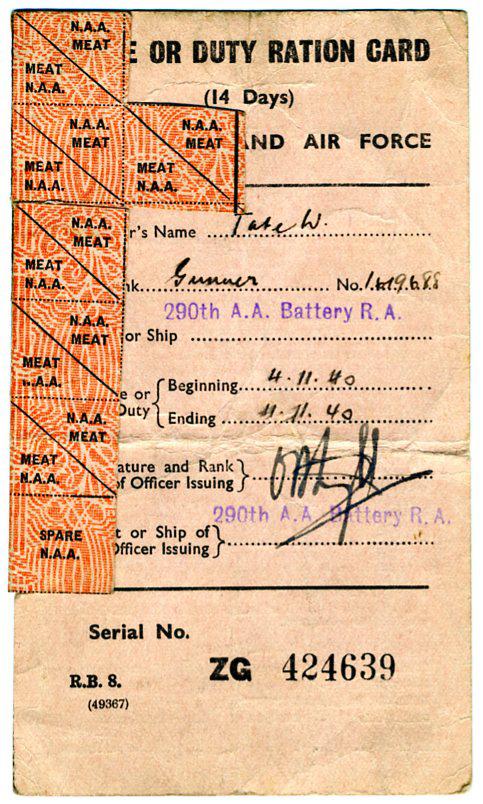 N.A.A.
MEAT
MEAT
N.A.A.
N.A.A.
MEAT
MEAT
N.A.A.
N.A.A.
MEAT
MEAT
N.A.A.
N.A.A.
MEAT
MEAT
N.A.A.
N.A.A.
MEAT
MEAT
N.A.A.
N.A.A.
MEAT
MEAT
N.A.A.
SPARE
N.A.A.
E OR DUTY RATION CARD
(14 Days)
ND AIR FORCE
r's Name Tate W.
nk Gunner No.
290th A.A. Battery R.A.
or Ship
e or Duty Beginning 4.11.40
Ending 11.11.40
ature and Rank
of Officer Issuing
290th A.A. Battery R.A.
t or Ship of
Officer Issuing
Serial No.
ZG 424639
R.B. 8.
(49367)